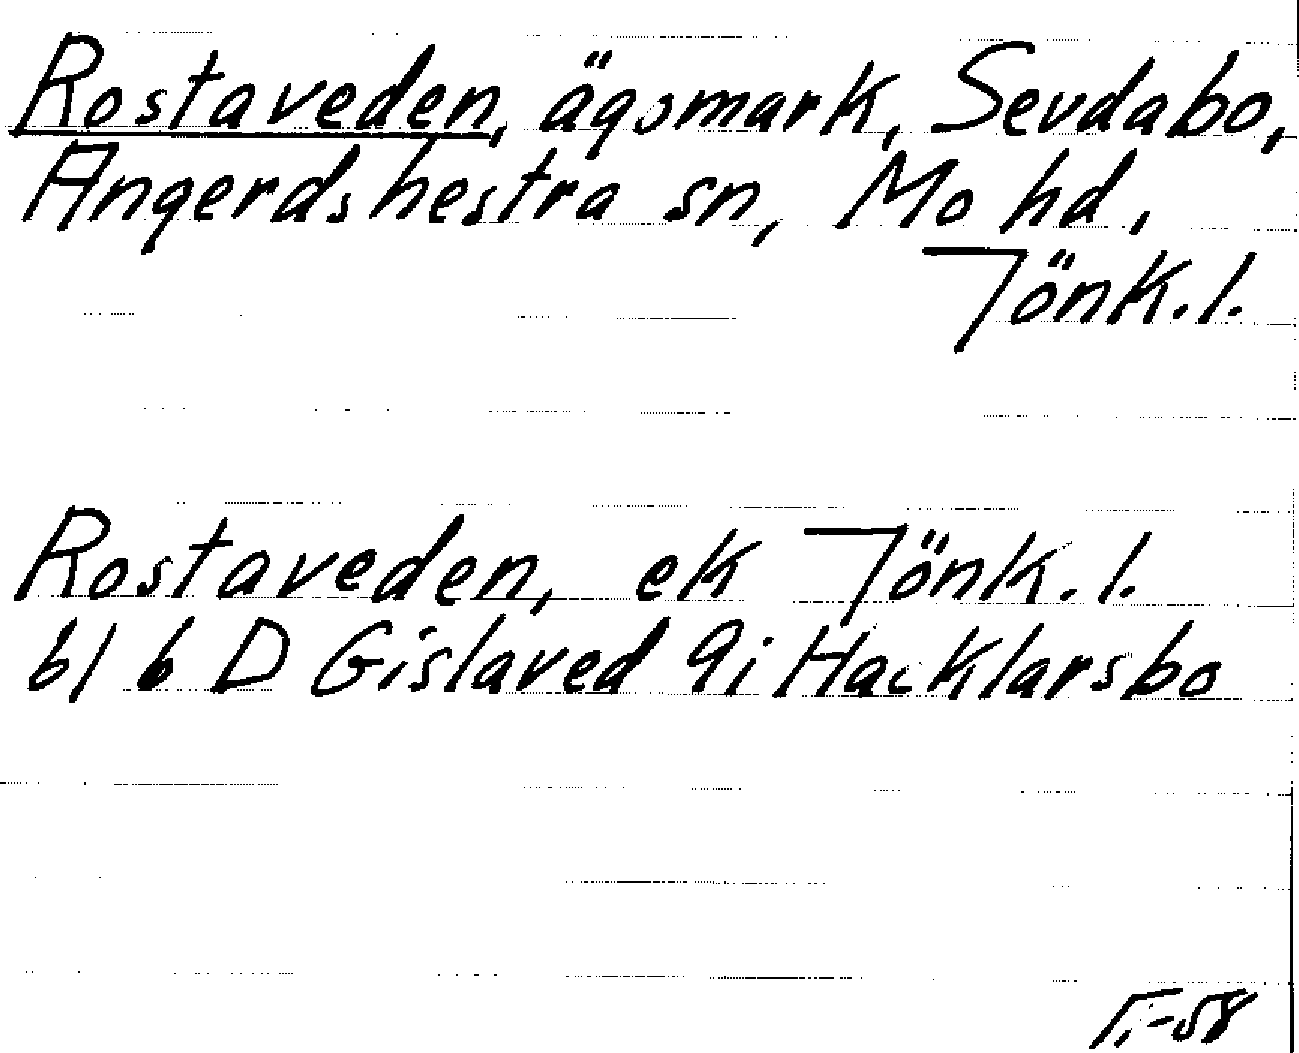 Rostaveden, ägomark, Sevdabo,
Angerdshestra sn, Mo hd,
Jönk. l.
Rostaveden, ek Jönk. l.
bl 6 D Gislaved 9i Hacklarsbo